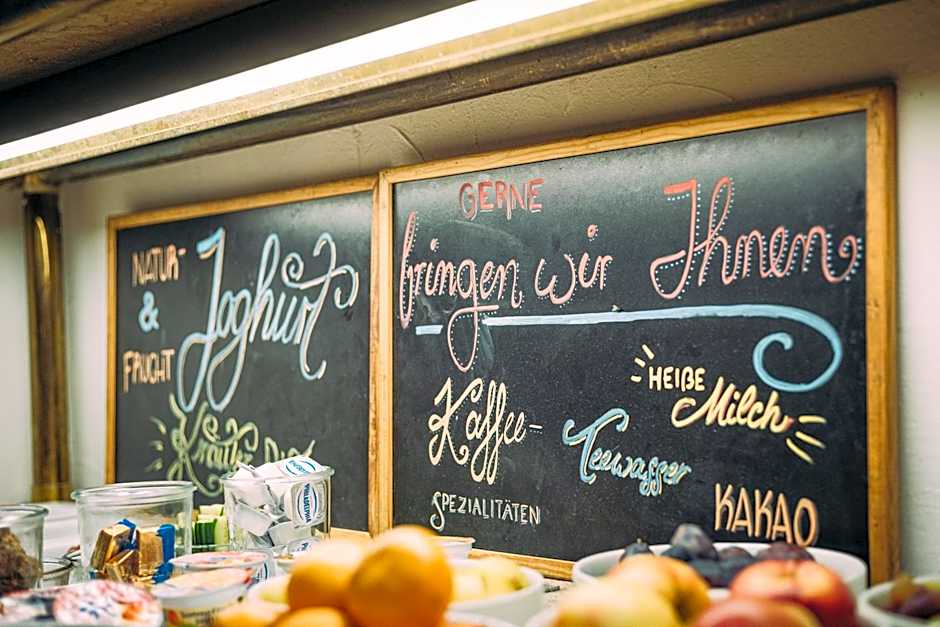 NATUR-
& Joghurt
FRUCHT
Kräuter Dip
GERNE
bringen wir Ihnen
HEIßE Milch
Kaffee-
SPEZIALITÄTEN
Teewasser
KAKAO